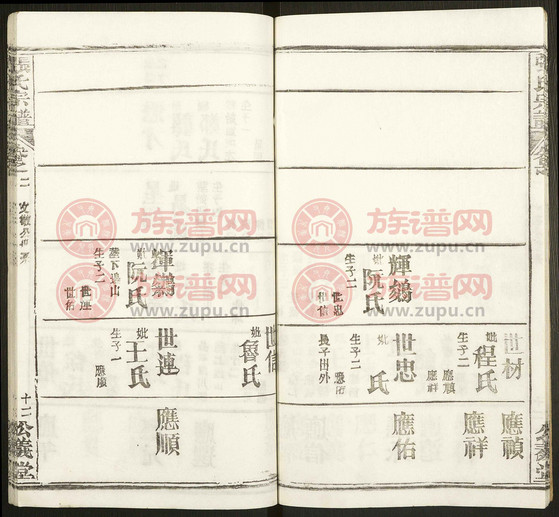 世材
妣程氏
生子二
應禎
應祥
應禎
應祥
輝鷂
妣阮氏
生子二
世忠
世信
世忠
妣 氏
生子二
長子出外
應佑
應佑
世信
妣魯氏
輝鷂
妣阮氏
生子二
世連
世佑
世連
妣王氏
生子一
應順
應順
張氏宗譜
十二
公義堂
族谱网
www.zupu.cn
族谱网
www.zupu.cn
族谱网
www.zupu.cn
族谱网
www.zupu.cn